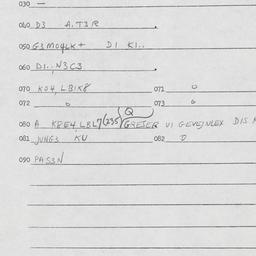 030 —
040 D3 A.T3R .
050 G3M04LK+ D1 K1..
060 D1..N3C3 .
070 K04 LB1K8 071 0
072 0 073 0
Q
080 A KRE4 LBL7(235) GREJER V1 GEVEJNLEX D1S
081 JUNG3 KU 082 D
090 PAS3N